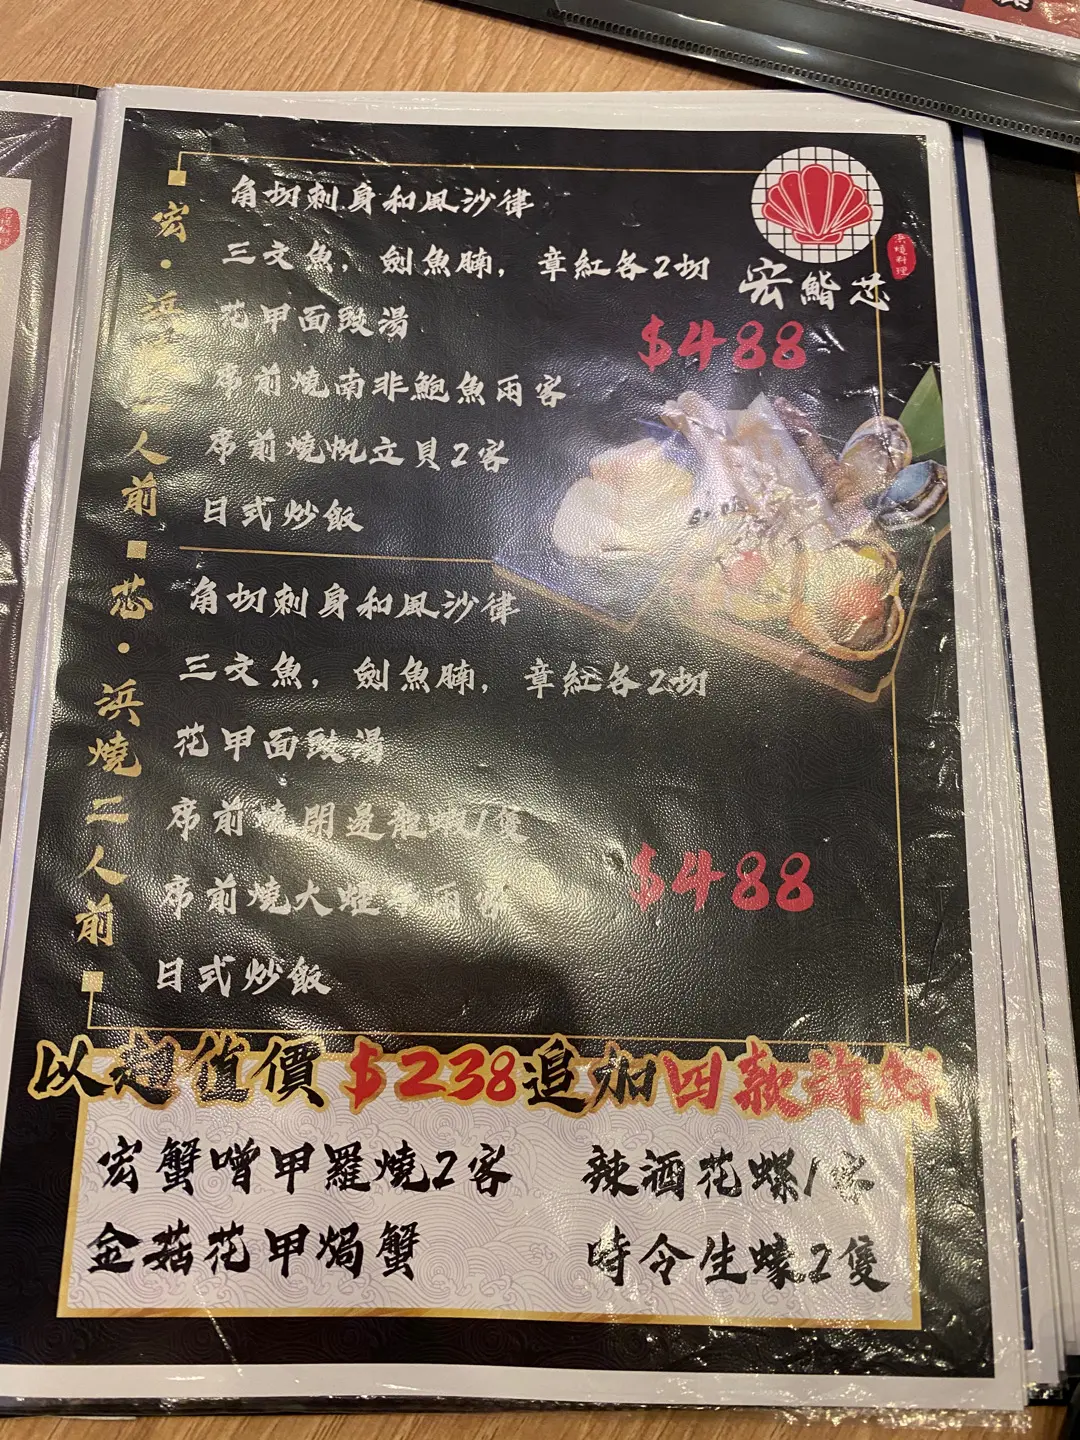 宏鮨芯
浜燒料理
宏・浜燒二人前
角切刺身和風沙律
三文魚，劍魚腩，章紅各2切
花甲面豉湯
$488
席前燒南非鮑魚兩客
席前燒帆立貝2客
日式炒飯
芯・浜燒二人前
角切刺身和風沙律
三文魚，劍魚腩，章紅各2切
花甲面豉湯
席前燒開邊龍蝦1隻
$488
席前燒大蟶子兩客
日式炒飯
以超值價$238追加四款海鮮
宏蟹噌甲羅燒2客
辣酒花螺1客
金菇花甲焗蟹
時令生蠔2隻